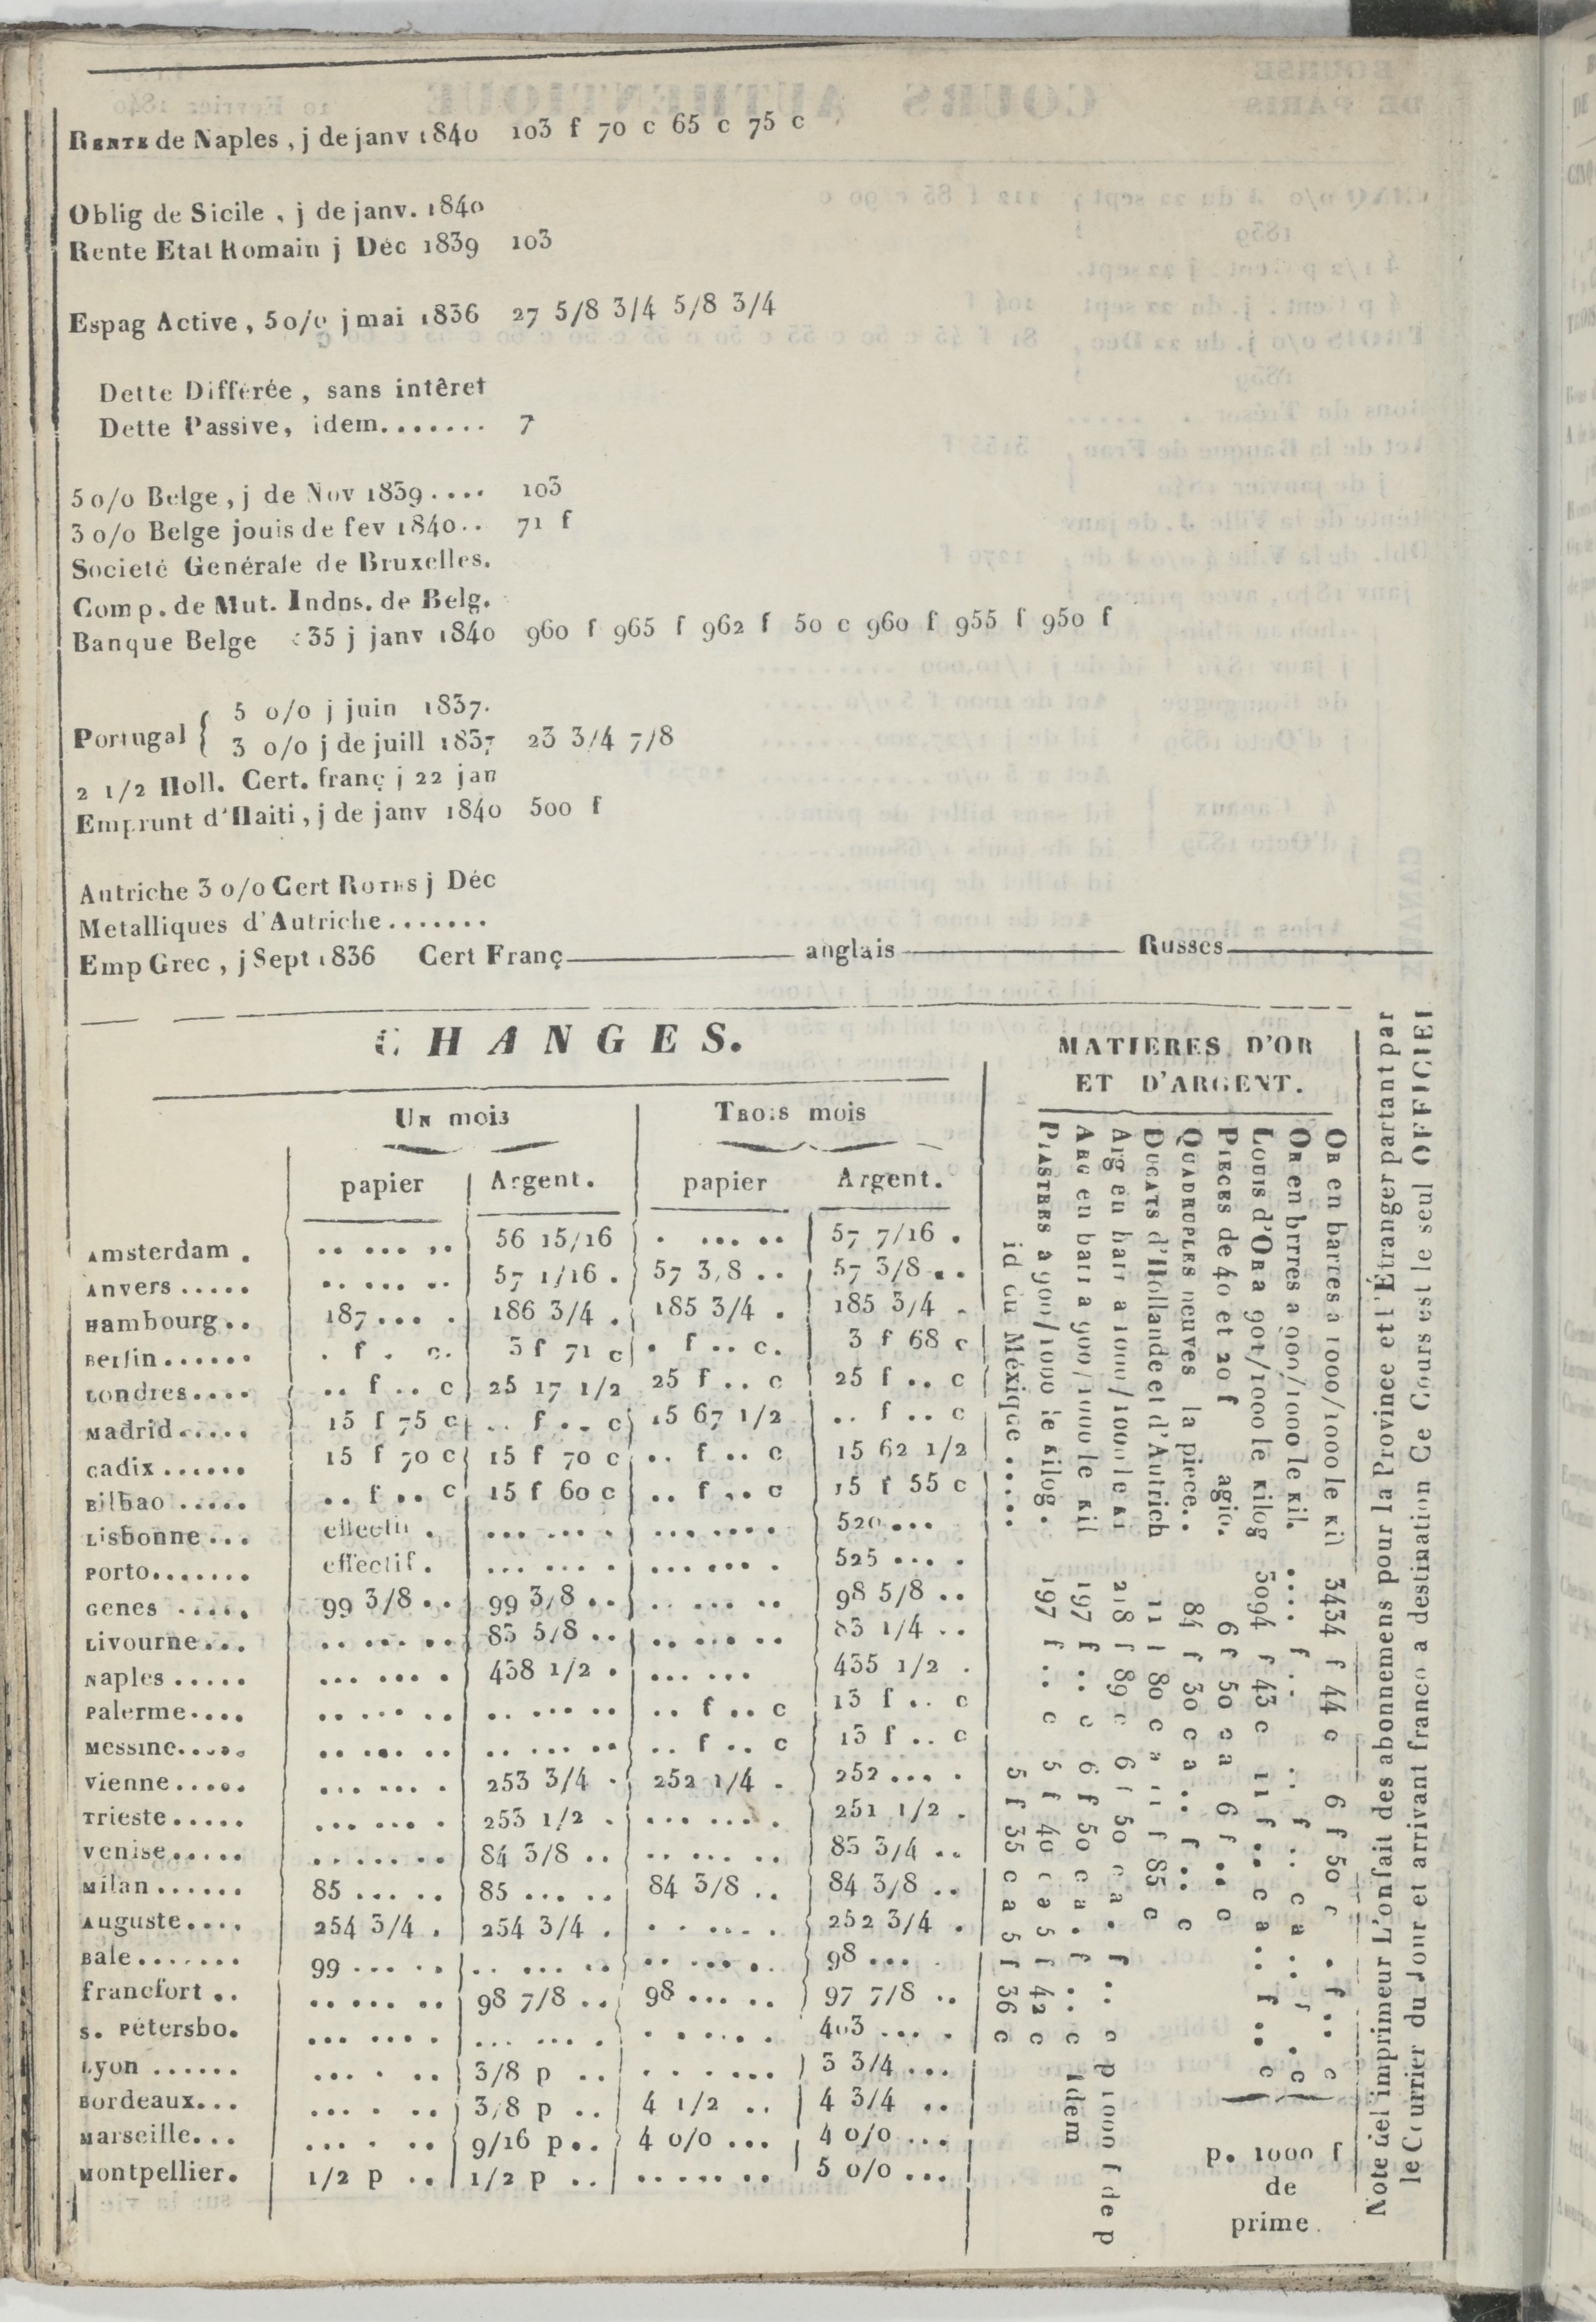 RENTE de Naples , j de janv 1840 103 f 70 c 65 c 75 c
Oblig de Sicile , j de janv. 1840
Rente Etat Romain j Déc 1839 103
Espag Active , 5 o/o j mai 1836 27 5/8 3/4 5/8 3/4
Dette Différée , sans intêret
Dette Passive, idem....... 7
5 o/o Belge , j de Nov 1839.... 103
3 o/o Belge jouis de fev 1840.. 71 f
Societé Genérale de Bruxelles.
Comp. de Mut. Indns. de Belg.
Banque Belge 35 j janv 1840 960 f 965 f 962 f 50 c 960 f 955 f 950 f
5 o/o j juin 1837.
Portugal { 3 o/o j de juill 1837 23 3/4 7/8
2 1/2 Holl. Cert. franç j 22 jan
Emprunt d'Haiti , j de janv 1840 500 f
Autriche 3 o/o Cert ROTHS j Déc
Metalliques d'Autriche.......
Emp Grec , j Sept 1836 Cert Franç anglais Russes
CHANGES.
UN mois TROIS mois
papier Argent. papier Argent.
Amsterdam . .. ... .. 56 15/16 . ... .. 57 7/16 .
Anvers ..... .. ... .. 57 1/16 . 57 3/8 .. 57 3/8 ..
Hambourg.. 187... . 186 3/4 . 185 3/4 . 185 3/4 .
Berlin...... . f . c. 3 f 71 c . f .. c. 3 f 68 c
Londres.... .. f .. c 25 17 1/2 25 f .. c 25 f .. c
Madrid..... 15 f 75 c .. f .. c 15 67 1/2 .. f .. c
Cadix ...... 15 f 70 c 15 f 70 c .. f .. c 15 62 1/2
Bilbao ..... .. f .. c 15 f 60 c .. f .. c 15 f 55 c
Lisbonne... effectif . ... ... . ... .... 520...
Porto....... effectif. ... ... . ... ... . 525 ... .
Genes ..... 99 3/8 .. 99 3/8 .. .. ... .. 98 5/8 ..
Livourne... .. ... .. 83 5/8 .. .. ... .. 83 1/4 ..
Naples ..... ... ... . 438 1/2 . ... ... 435 1/2 .
Palerme.... .. ... .. .. ... .. .. f .. c 13 f .. c
Messine..... .. ... .. .. ... .. .. f .. c 13 f .. c
Vienne..... ... ... . 253 3/4 . 252 1/4 . 252 ... .
Trieste..... ... ... . 253 1/2 . ... ... . 251 1/2 .
Venise..... .. ... .. 84 3/8 .. .. ... .. 83 3/4 ..
Milan ...... 85 ... .. 85 ... .. 84 3/8 .. 84 3/8 ..
Auguste.... 254 3/4 . 254 3/4 . . . ... . 252 3/4 .
Bale....... 99 ... .. .. ... .. .. ... .. 98 ... .
francfort .. .. ... .. 98 7/8 .. 98 ... .. 97 7/8 ..
S. Pétersbo. ... ... . ... ... . . . ... . 403 ... .
Lyon ...... ... . .. 3/8 p .. . . .... 3 3/4 ...
Bordeaux... ... . .. 3/8 p .. 4 1/2 .. 4 3/4 ..
Marseille... ... . .. 9/16 p.. 4 o/o ... 4 o/o ...
Montpellier. 1/2 p .. 1/2 p .. .. ... .. 5 o/o ...
MATIERES D'OR
ET D'ARGENT.
OR en barres a 1000/1000 le kil 3434 f 44 c 6 f 50 c . f .. c
OR en brres a 900/1000 le kil. .... f .. .. f .. c a .. f .. c
LOUIS d'OR a 901/1000 le kilog 3094 f 43 c 11 f .. c a .. f .. c
PIECES de 40 et 20 f agio. 6 f 50 c a 6 f .. c
QUADRUPLES neuves la piece.. 84 f 30 c a .. f .. c
DUCATS d'Hollande et d'Autrich 11 f 80 c a 11 f 85 c
Arg en barr a 1000/1000 le ki 218 f 89 c 6 f 50 c a . f .. c p 1000 f de p
ARG en barr a 900/1000 le kil 197 f .. c 6 f 50 c a . f .. c idem
PIASTRES a 900/1000 le kilog. 197 f .. c 5 f 40 c a 5 f 42 c
id du Méxique ..... 5 f 35 c a 5 f 36 c
p. 1000 f
de
prime.
Note del imprimeur L'on fait des abonnemens pour la Province et l'Étranger partant par
le Courrier du Jour et arrivant franco a destination Ce Cours est le seul OFFICIEL